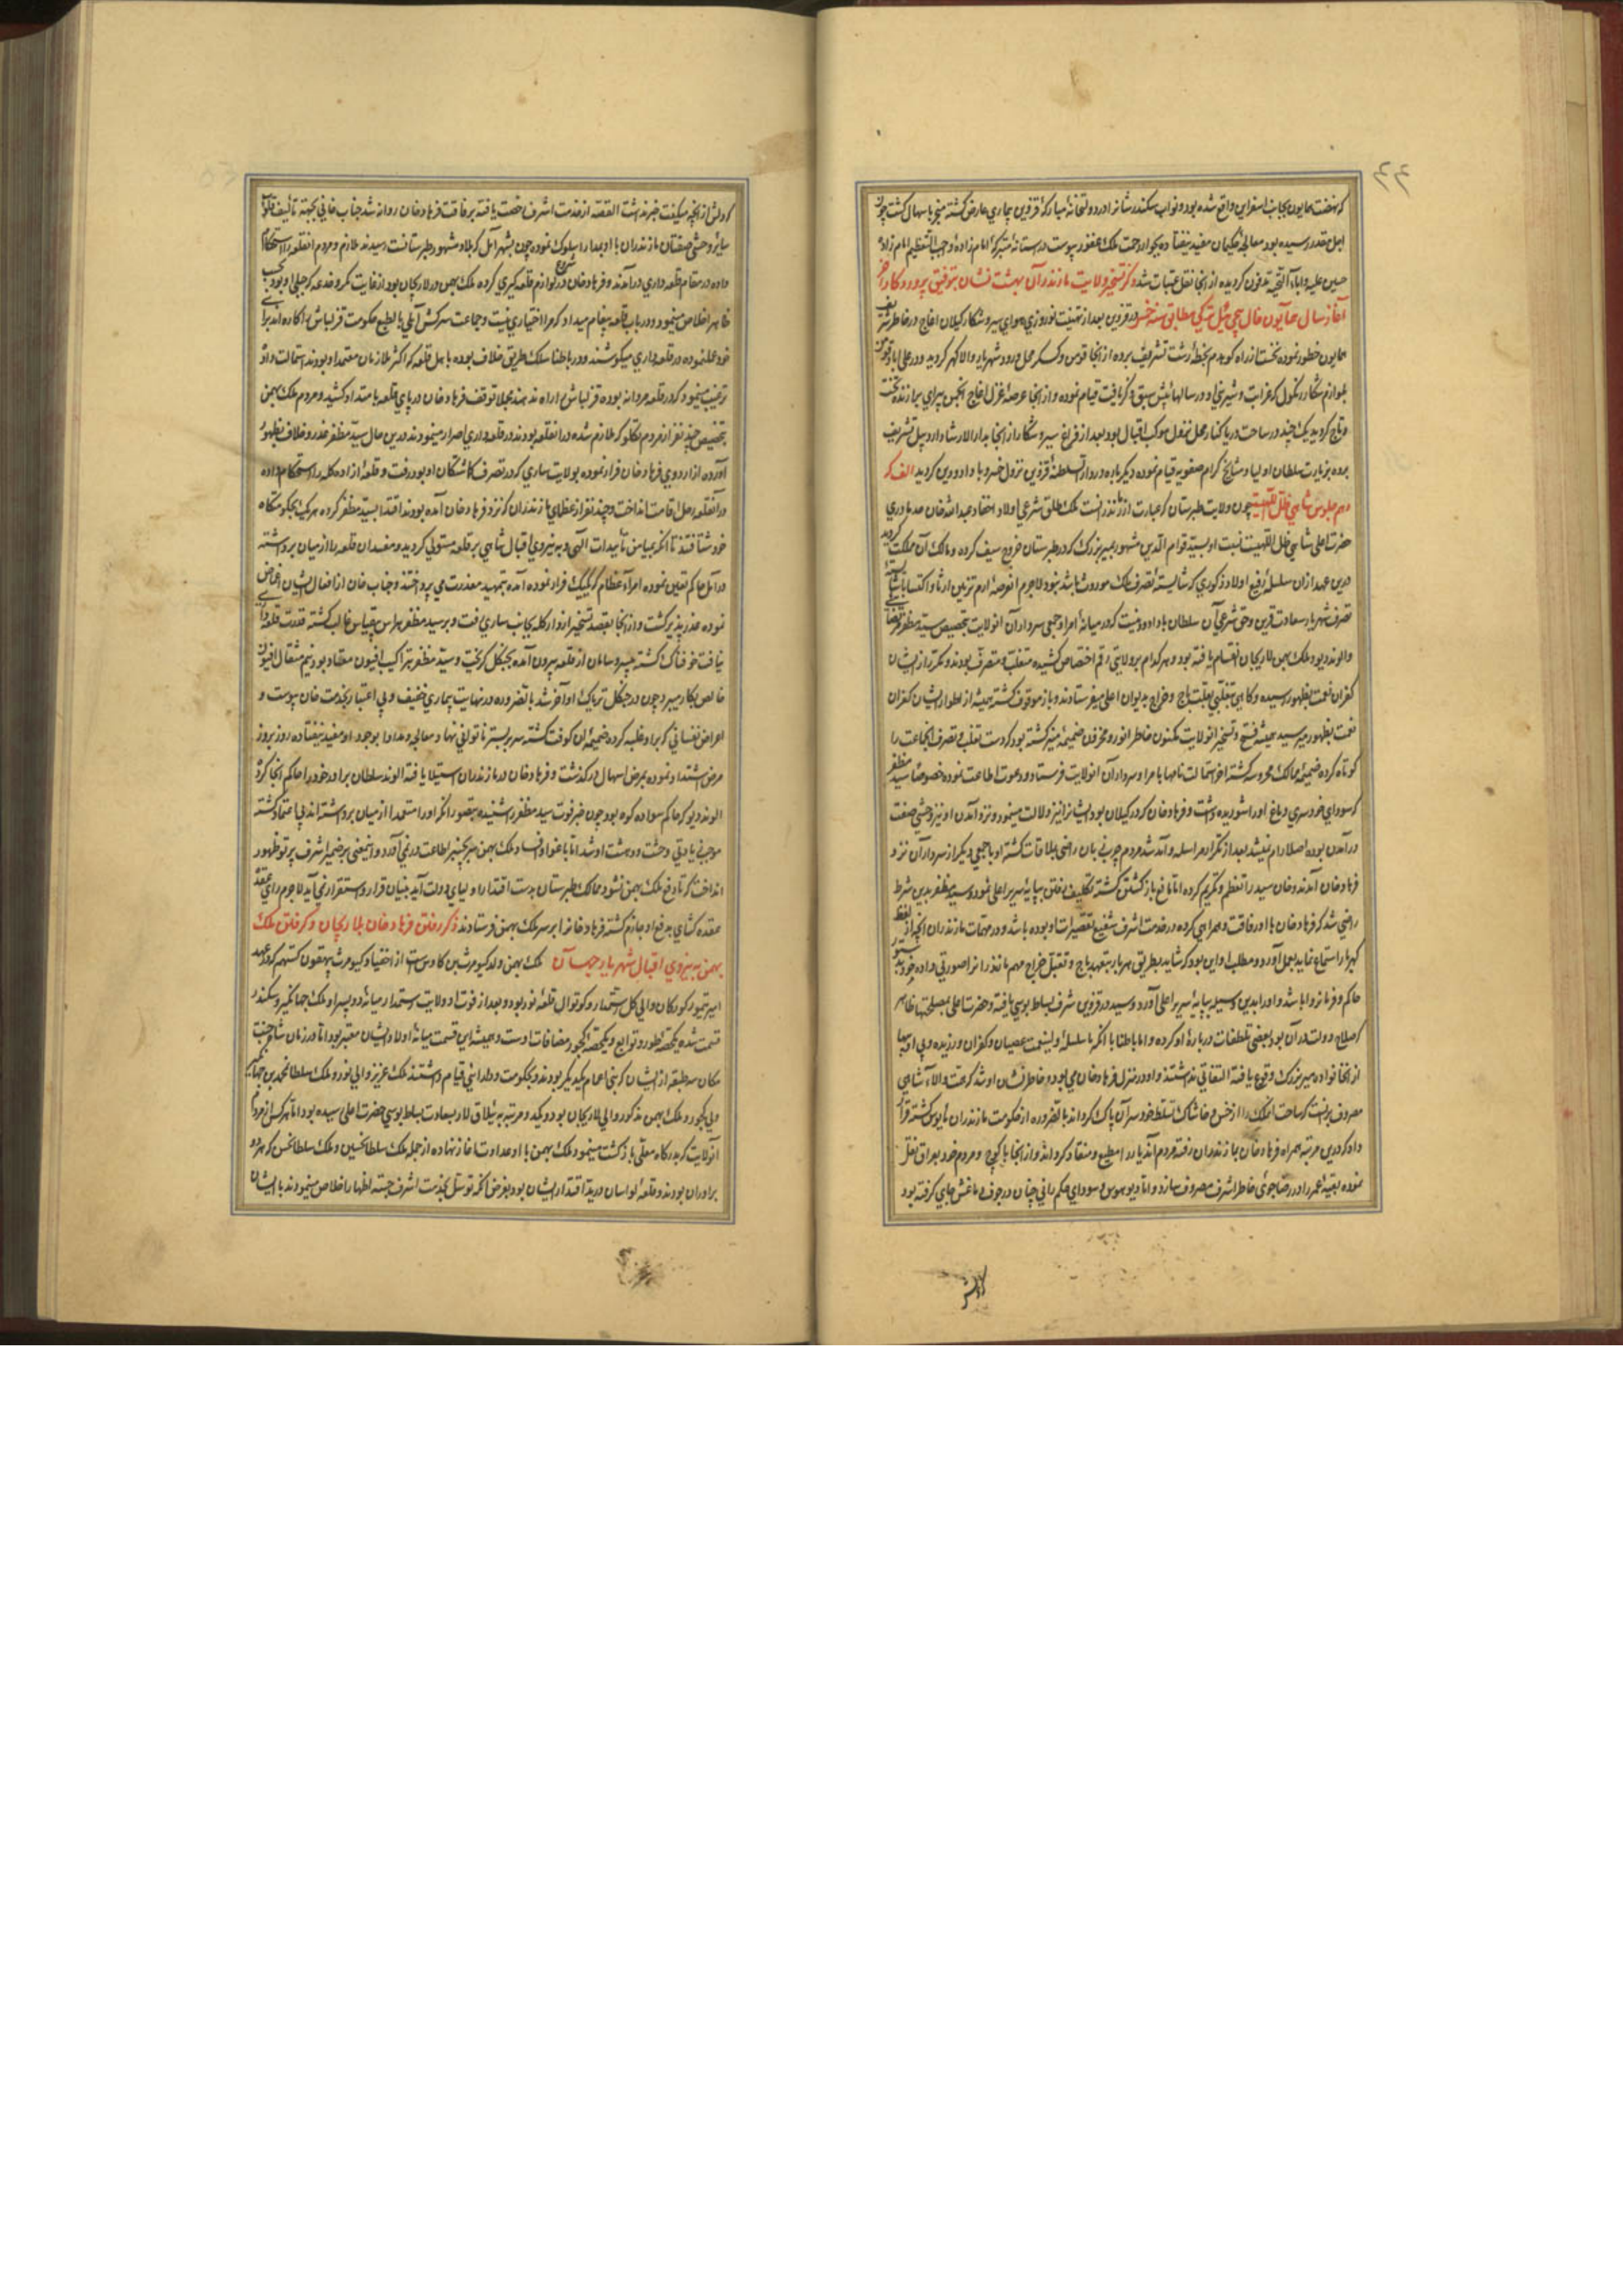 که نهضت همایون بجانب اسفراین واقع شده بود و نواب سکندر شانرا در دولتخانه مبارکه قزوین بیماری عارض گشته منجر باسهال گشت چون
اجل مقدر رسیده بود معالجه حکیمان مفید نیفتاده بجوار رحمت ملک غفور پیوست در آستانه متبرکه امام زاده واجب التعظیم امام زاده
حسین علیه و آبائه التحیه مدفون گردیده از آنجا نقل عتبات شد ذکر تسخیر ولایت مازندران بهشت نشان بتوفیق پروردگار
آغاز سال همایون فال پیچی ئیل ترکی مطابق سنه خمس در قزوین بعد از تهنیت نوروزی هوای سیر و شکار گیلان در خاطر
همایون خطور نموده نخست از راه کوهدم بخطه رشت تشریف برده از آنجا و لسکر محل ورود شهریار والا گهر گردید و در علی اباد
بلوازم شکار که در سالهای پیش سبق ذکر یافت قیام نموده و از آنجا عرصه
و تاج گردید یک چند در ساحت دریا کنار محل نزول موکب اقبال بود بعد از فراغ سیر و شکار از آنجا بدار الارشاد اردبیل تشریف
برده بزیارت سلطان اولیا و مشایخ کرام صفویه قیام نموده دیگر باره در دار السلطنه قزوین نزول گردید الف که
دهم جلوس شاهی ظل اللهیست چون ولایت طبرستان که عبارت از مازندرانست ملک طلق شرعی اولاد احفاد عبدالله خان جد مادری
حضرت اعلی شاهی ظل اللهیست نسبت او بسید قوام الدین مشهور بمیر بزرگ که در طبرستان خروج سیف کرده و مالک آن مملکت گردید
درین عهد از آن سلسله رفیع اولاد ذکوری که شایسته تصرف ملک موروث باشد نبود لاجرم
تصرف شهریار سعادت قرین و حق شرعی آن سلطان با داد و دینست که در میانه امرا و جمعی سرداران آن ولایت بتخصیص سید مظفر
و الوند دیو و ملک بهمن لاریجان انقسام یافته بود و هر کدام بر ولایتی رقم اختصاص کشیده متغلب و متصرف بودند و مکرر از ایشان
کفران نعمت بظهور رسیده و گاهی بتغلب باج و خراج بدیوان اعلی میفرستادند و باز موقوف گشته همیشه از اطوار ایشان کفران
نعمت بظهور میرسید همیشه فتح و تسخیر آن ولایت مکنون خاطر انور گشته بود که دست تغلب و تصرف آنجماعت را
کوتاه کرده ضمیمه ممالک محروسه گشته استمالت نامها بامرا و سرداران آن ولایت فرستاد و دعوت اطاعت نموده خصوصا سید مظفر
که سودای خودسری دماغ او را شوریده داشت و فرهاد خان که در گیلان بود ایشانرا نیز دلالت مینمود و نزد آمدن او نیز وحشی صفت
در آمدن بوده اصلا رام نمیشد بعد از تکرار مراسله و آمد شد مردم چرب زبان راضی بملاقات گشته او با جمعی دیگر از سرداران نزد
فرهاد خان آمدند و خان سید را تعظیم و تکریم کرده اما مانع بازگشتن گشته تکلیف رفتن بپایه سریر اعلی نمود و سید مظفر بدین شرط
راضی شد که فرهاد خان با او رفاقت و همراهی کرده در خدمت اشرف شفیع تقصیرات او بوده باشد و در مهمات مازندران آنچه از
استماع نماید بعمل آورد و مطلب او این بود که شاید بطریق هر بار بتعهد باج و تقبل خراج مهم مازندران را صورتی داده خود
حاکم و فرمانروا باشد و او را بدین وسیله بپایه سریر اعلی آورد و سید در قزوین شرف بساط بوسی یافته و حضرت اعلی بمصلحتها ظاهر
که صلاح دولت در آن بود بعضی تلطفات درباره او کرده و اما باطنا با آنکه با سلسله ولینعمت عصیان و کفران ورزیده و
از نخانواده میر بزرگ وقوع یافته التفاتی نداشتند و او در منزل فرهاد خان می بود و خاطر نشان او شد که همت والای شاهی
مصروف برآنست که ساحت آن ملک را از خس و خاشاک تسلط خودسران پاک گرداند بالضروره از حکومت مازندران مایوس گشته
داد که درین مرتبه همراه فرهاد خان بمازندران رفته مردم آن دیار را مطیع و منقاد گرداند و از آنجا با کوچ و مردم خود بعراق نقل
نموده بقیه عمر را در رضاجوئی خاطر اشرف مصروف سازد و اما دیو هوس و سودای حکمرانی چنان در جوف دماغش جای گرفته بود
که دلش از آنچه میگفت خبر نداشت القصه از خدمت اشرف رخصت یافته برفاقت فرهاد خان روانه شد جناب خانی بجهته تالیف قلوب
سایر وحشی صفتان مازندران با او بمدارا سلوک نموده چون بشهر آمل که بلده مشهور طبرستانست رسیدند ملازم و مردم آن قلعه را استحکام
داده در مقام قلعه داری درآمدند و فرهاد خان شروع در لوازم قلعه گیری کرده ملک بهمن در لاریجان بود از غایت مکر و خدعه که جبلی او بود
ظاهر اخلاص مینمود و در باب قلعه پیغام میداد که مرا اختیاری نیست و جماعت سرکش آملی بالطبع حکومت قزلباش را کاره اند
خود عمل نموده در قلعه داری میکوشند و در باطن سالک طریق خلاف بوده باهل قلعه که اکثر ملازمان معتمد او بودند استمالت داده
ترغیب مینمود که در قلعه مردانه بوده قزلباش را راه ندهند عجالة توقف فرهاد خان در پای قلعه بامتداد کشید و مردم ملک بهمن
بتخصیص چند نفر از مردم که ملازم شده در آن قلعه بودند در قلعه داری اصرار مینمودند درین حال سید مظفر غدر و خلاف بظهور
آورده از اردوی فرهاد خان فرار نموده بولایت ساری که در تصرف گماشتگان او بود رفت و قلعه را استحکام داده
در آن قلعه رحل اقامت انداخت و چند نفر از عظمای مازندران که نزد فرهاد خان آمده بودند اقتدا بسید مظفر کرده هر یک بحکومتگاه
خود شتافتند تا آنکه بمیامن تائیدات الهی و به نیروی اقبال شاهی بر قلعه مستولی گردید و مفسدان قلعه را از میان برداشته
در آمل حاکم تعیین نموده امراء عظام که یک یک فرار نموده آمده بتمهید معذرت می پرداختند و جناب خان از افعال ایشان اغماض
نموده عذرپذیر گشت و از آنجا بقصد تسخیر بجانب ساری رفت و بر سید مظفر هراس بیقیاس غالب گشته قدرت قلعه داری
نیافت خوفناک گشته بیسر و سامان از قلعه بیرون آمده بجنگل گریخت و سید مظفر بتراکیب افیون معتاد بود نیم مثقال افیون
خالص بکار میبرد چون در جنگل تریاک او آخر شد بالضروره در نهایت بیماری خفیف و بی اعتبار بخدمت خان پیوست و
امراض نفسانی که برو غلبه کرده ضمیمه آن کوفت گشته سر بر بستر ناتوانی نهاد و معالجه و مداوا بوجود او مفید نیفتاده روز بروز
مرض اشتداد نموده بمرض اسهال درگذشت و فرهاد خان در مازندران استیلا یافته الوند سلطان برادر خود را حاکم آنجا کرد
الوند دیو که حاکم سواد کوه بود چون خبر فوت سید مظفر شنیده بتصور آنکه او را متعمدا از میان برداشته اند بی اعتماد گشته
موجب زیادتی وحشت و دهشت او شد اما باغوا و افساد ملک بهمن سر بچنبر اطاعت در نمی آورد و اینمعنی بر ضمیر اشرف پرتو ظهور
انداخت که تا دفع ملک بهمن نشود ممالک طبرستان بدست اقتدار اولیای دولت آید بنیان قرار و استقرار نمی یابد لاجرم رای عقده
عقده گشای بدفع او جازم گشته فرهاد خانرا بر سر ملک بهمن فرستادند ذکر رفتن فرهاد خان بلاریجان و گرفتن ملک
بهمن به نیروی اقبال شهریار جهان ملک بهمن ولد کیومرث بن کاوس است از احفاد کیومرث
امیر تیمور گورکان والی کل رستمدار و کوتوال قلعه نور بود و بعد از فوت او ولایت رستمدار میانه دو پسر او ملک جهانگیر و سکندر
قسمت شده یک حصه نور و توابع و یک حصه کجور و مضافات اوست و همیشه این قسمت میانه اولاد ایشان معتبر بود اما در زمان شاه جنت
مکان سه طبقه از ایشان که بنی اعمام یکدیگر بودند بحکومت و دارائی قیام داشتند ملک عزیز والی نور و ملک سلطان محمد بن جهانگیر
والی کجور و ملک بهمن مذکور والی لاریجان بود و یکدو مرتبه به ییلاق لار بسعادت بساط بوسی حضرت اعلی رسیده بود اما هر کس از مردم
آن ولایت که بدرگاه معلی بازگشت مینمود ملک بهمن با او عداوت آغاز نهاده از جمله ملک سلطان حسین و ملک سلطان که هر دو
برادران بودند و قلعه لواسان در ید اقتدار ایشان بود بغرض آنکه توسل بخدمت اشرف جسته اظهار اخلاص مینمودند با ایشان